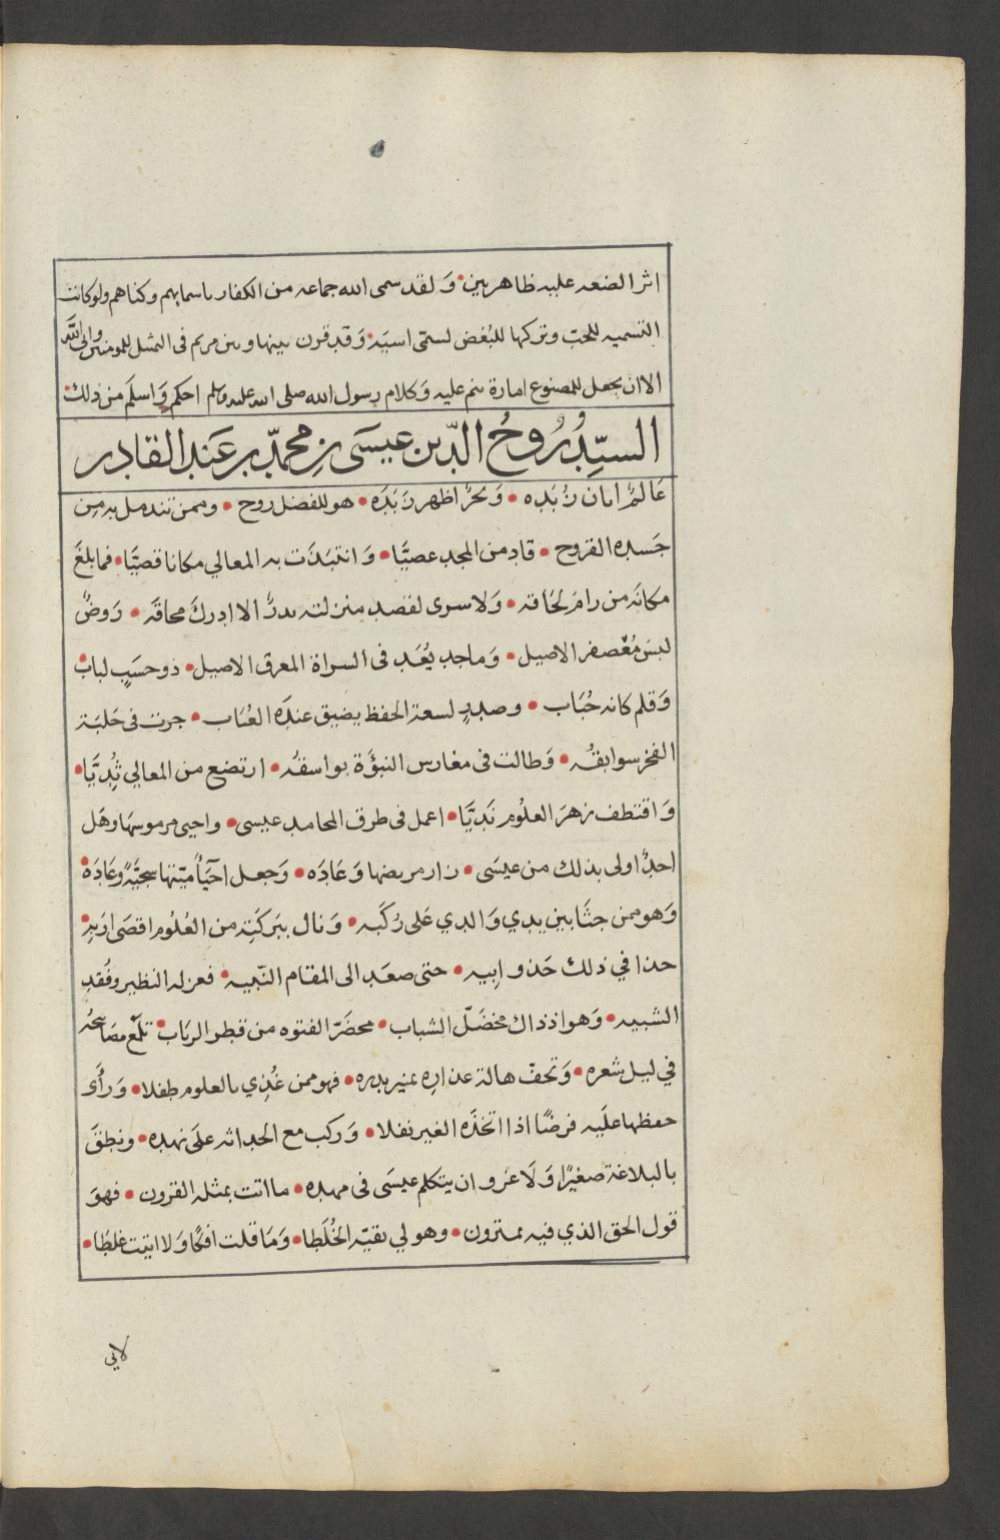 اثر الضعه عليه ظاهر بين • وَلقد سمى الله جماعه من الكفار باسمايهم وكناهم ولوكانت
التسميه للحب وتركها للبُغض لسمّى اسيَه • وَقد قرن بينها وبين مريم في المثل للمومنين
الا ان يجعل للمصنوع امارة ينم عليه وَكلام رسول الله صلى الله عليه وسلم احكم وَاسلَم من ذلك •
السيِّدُ رُوحُ الدّين عيسَى بن محمدّ بن عَبد القادر
عَالمٌ ابان زُبَدِه • وَبحرٌ اظهر زَبَدَه • هو للفضل روح • وممن تندمل به من
جَسده القروح • قاد من المجد عصيًّا • وَانتبَذَت به المعالي مكانا قصيًّا • فما بلغَ
مكانَه من رامَ لحَاقه • وَلا سرى لقصد منزلته بدرٌ الا ادركَ محاقَه • رَوضٌ
لبسَ مُعْصفر الاصيل • وَماجد يُعَد في السراة المعرق الاصيل • ذو حسَبٍ لباب •
وَقلم كانه حُبَاب • وصددٍ لسعة الحفظ يضيق عندَه العُبَاب • جرت في حَلبَة
الفخر سوابقُه • وَطالت في مغارس النبوَّة بواسقُه • ارتضع من المعالي ثُدِيَّا •
وَاقتطف زهرَ العلوُم نَديَّا • اعمل في طرق المحامد عيسى • واحيى مرموسهَا وهَل
احدٌ اولى بذلك من عيسَى • زار مريضها وَعَادَه • وَجعل احيَآُ ميّتها سجيَّهً وعَادَة •
وَهو ممن جثَا بين يدي وَالدي عَلى رُكَبه • وَنال ببَركَتِه من العُلوُم اقصَى اربه •
حذا في ذلك حَذو ابيه • حتى صعَد الى المقام النّبيه • فعز له النظير وفُقد
الشبيه • وَهو اذ ذاك مخضَلّ الشباب • محضَرّ الفتوه من قطر الربَاب • تلمّع مصَابيحُه
في ليل شعره • وَتحفّ هالة عذاره بمنير بدره • فهو ممن غُذِي بالعلوم طفلا • وَرأَى
حفظها علَيه فرضًا اذا اتخذَه الغير نفلا • وَركب مع الحداثه علَى نهده • ونطقَ
بالبلاغة صغيرًا وَلَا غرو ان يتكلم عيسَى في مهده • ما اتت بمثله القرون • فهوَ
قول الحق الذي فيه يمترون • وهو لي بقيّة الخُلَطا • وَمَا قلت افكًا وَلا اتيت غلطَا •
لابي